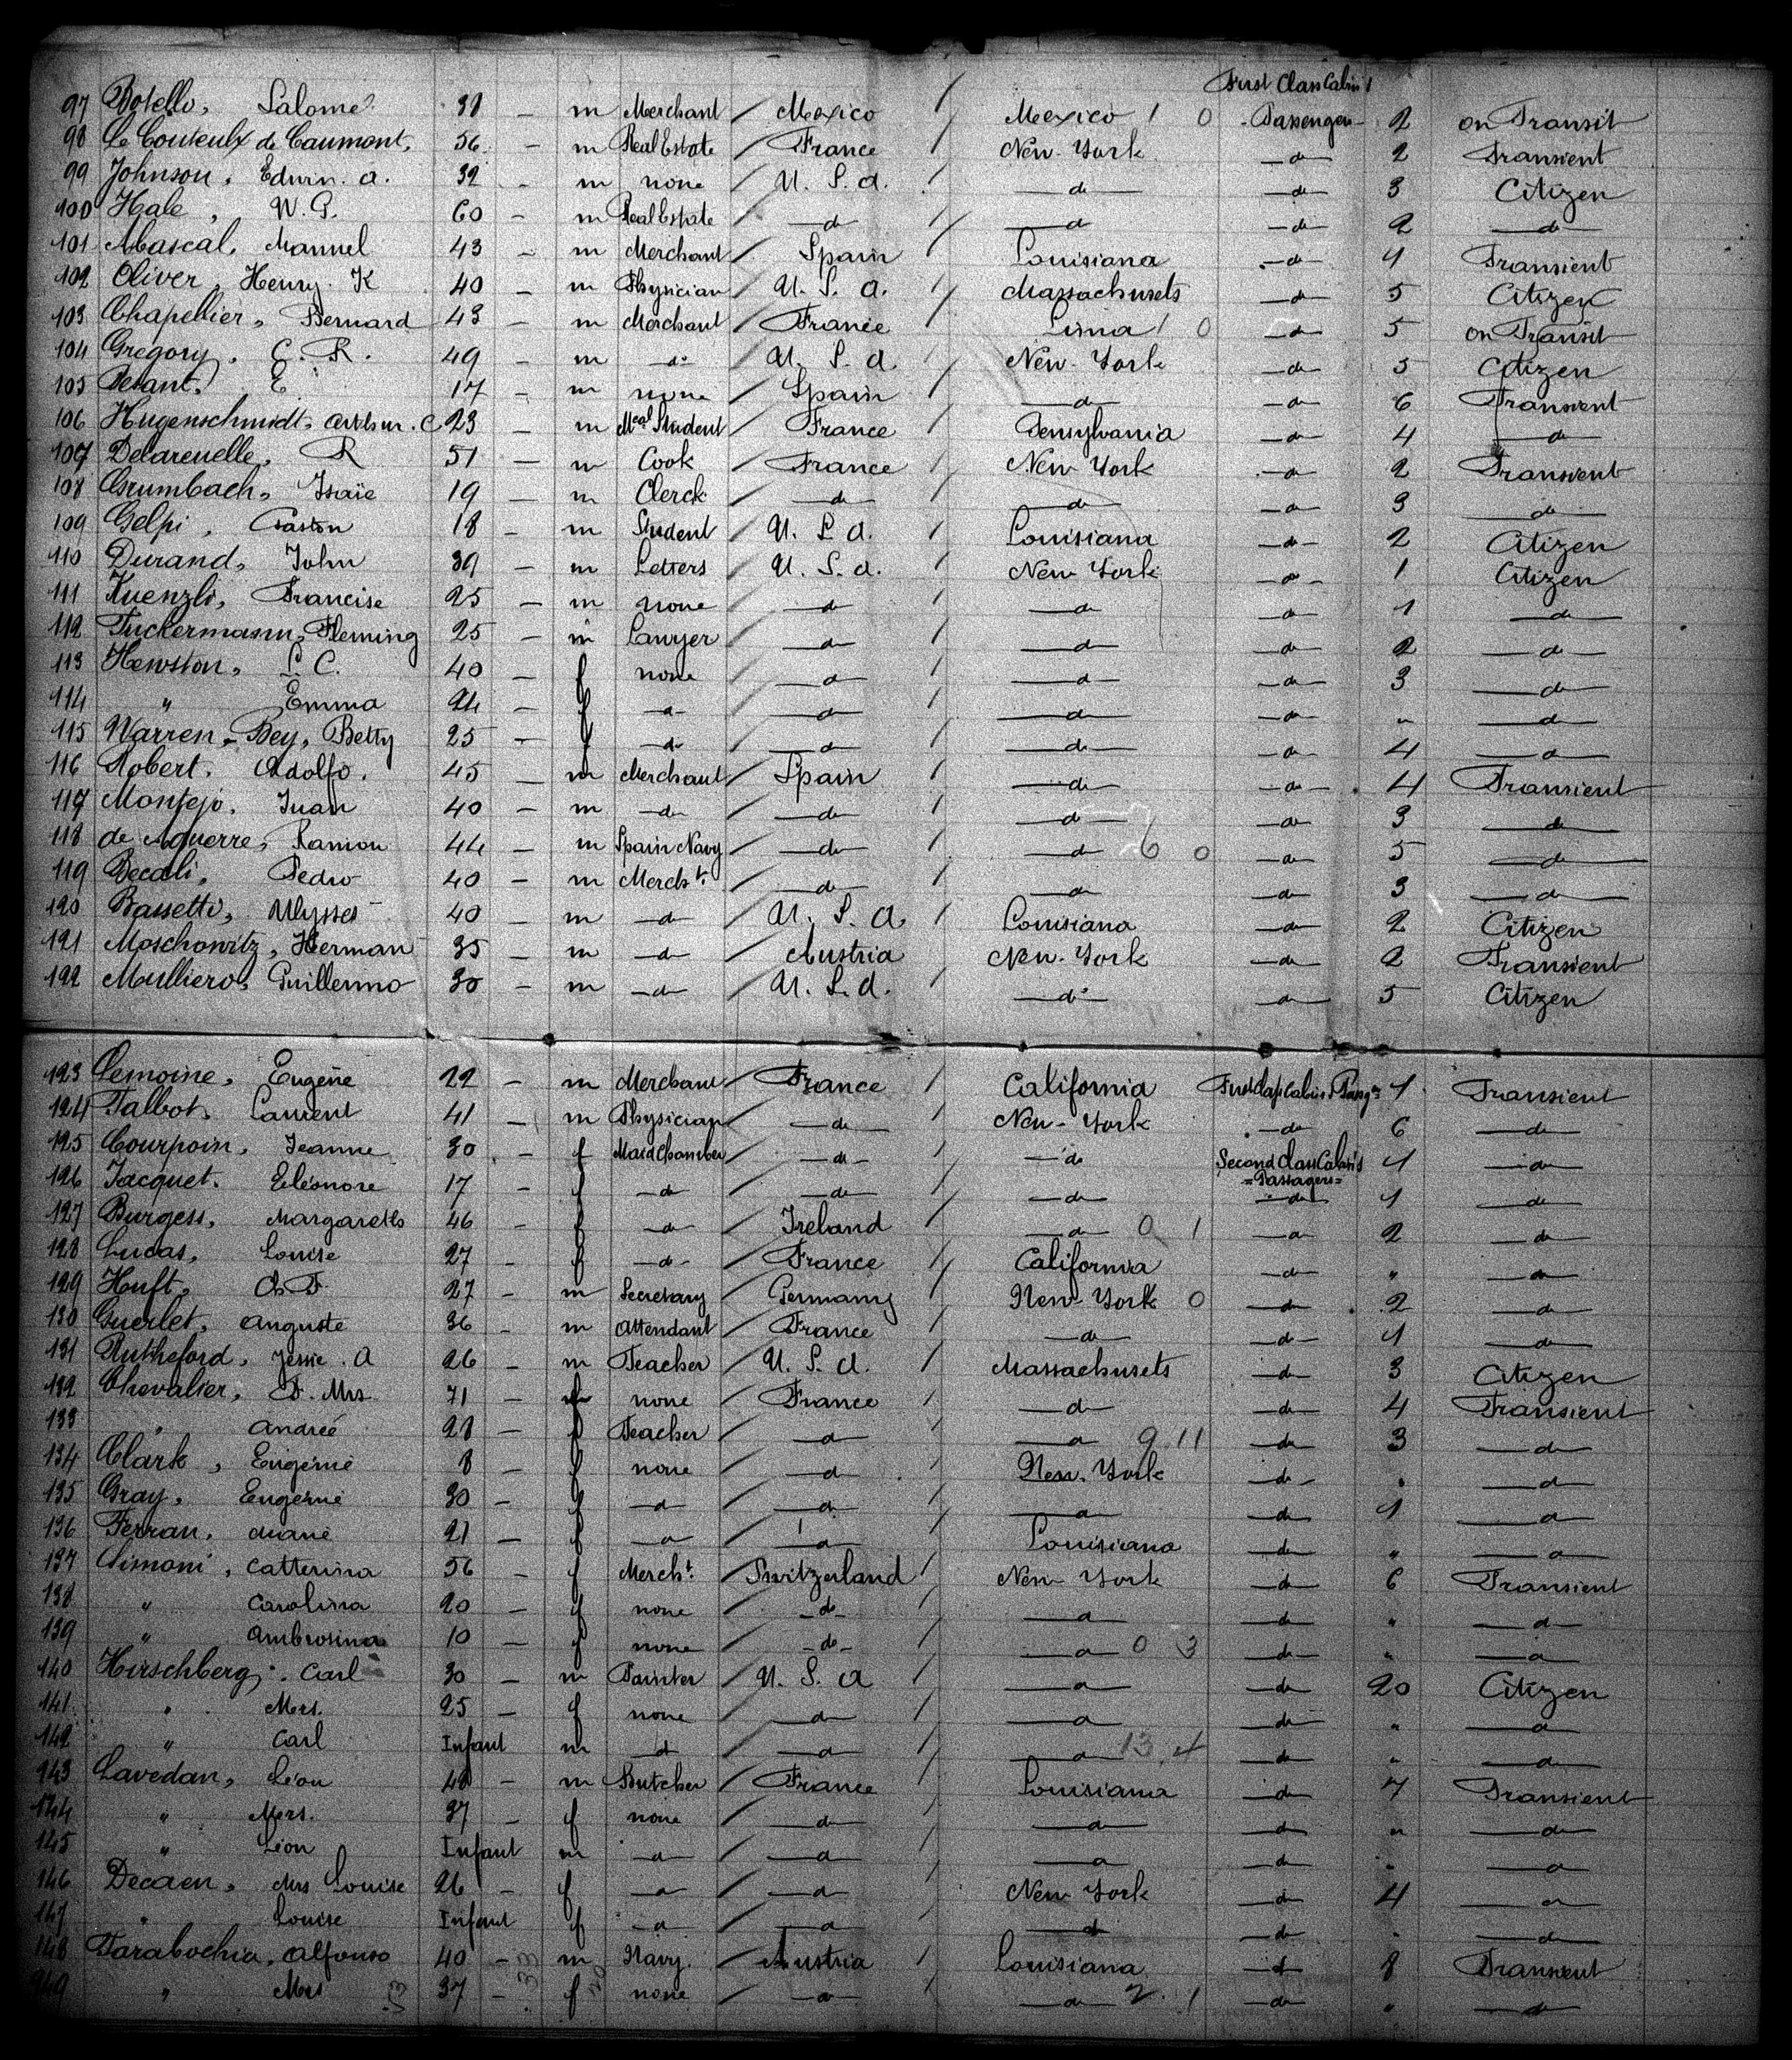 First Class Cabin
97 Botello, Salome 31 — m Merchant / Mexico / Mexico 1 0 - Passenger - 2 on Transit
98 Le Couteulx de Caumont, 56 — m Real Estate / France / New-York —do— 2 Transient
99 Johnson, Edwin. A. 32 - m none / U. S. A. / —do— —do— 3 Citizen
100 Hale, W. G. 60 - m Real Estate / —do— / —do— —do— 2 —do—
101 Mascal, Manuel 43 - m Merchant / Spain / Louisiana —do— 1 Transient
102 Oliver, Henry. K 40 — m Physician / U. S. A. / Massachusets —do— 5 Citizen
103 Chapellier, Bernard 43 — m Merchant / France / Lima 1 0 —do— 5 on Transit
104 Gregory, C. R. 49 — m —do— / U. S. A. New-York —do— 5 Citizen
105 E 17 — m none / Spain / —do— —do— 6 Transient
106 Hugenschmidt, Arthur. C 23 — m Mcal Student / France / Pensylvania —do— 4 —do—
107 Delareuelle, R 51 — m Cook / France / New York —do— 2 Transient
108 Grumbach, Isaïe 19 — m Clerck / —do— / —do— —do— 3 —do—
109 Gelpi, Gaston 18 - m Student / U. S. A. / Louisiana —do— 2 Citizen
110 Durand, John 39 — m Letters / U. S. A. / New York —do— 1 Citizen
111 Kuenzli, Francise 25 — m none / —do— / —do— —do— 1 —do—
112 Tuckermann, Fleming 25 — m Lawyer / —do— / —do— —do— 2 —do—
113 Hewston, L. C. 40 — f none / —do— / —do— —do— 3 —do—
114 " Emma 24 — f —do— / —do— / —do— —do— " —do—
115 Warren-Bey, Betty 25 — f —do— / —do— / —do— —do— 4 —do—
116 Robert, Adolfo. 45 — m Merchant / Spain / —do— —do— 4 Transient
117 Montejo, Juan 40 — m —do— / —do— / —do— —do— 3 —do—
118 de Aguerre, Ramon 44 — m Spain Navy / —do— / —do— 6 0 —do— 5 —do—
119 Becali, Pedro 40 — m Mercht. / —do— / —do— —do— 3 —do—
120 Bassetti, Ulysses 40 — m —do— / U. S. A. / Louisiana —do— 2 Citizen
121 Moschowitz, Herman 35 — m —do— / Austria New-York —do— 2 Transient
122 Mulliero, Guillermo 30 — m —do— / U. S. A. / —do— —do— 5 Citizen
123 Lemoine, Eugène 22 — m Merchant / France / California First Class Cabin Pasgrs 1 Transient
124 Talbot, Laurent 41 — m Physician / —do— / New-York —do— 6 —do—
125 Courpoin, Jeanne 30 — f Maid Chamber / —do— / —do— Second Class Cabin's 1 —do—
=Passagers=
126 Jacquet, Eléonore 17 — f —do— / —do— / —do— —do— 1 —do—
127 Burgess, Margareth 46 — f —do— / Ireland / —do— 0 1 —do— 2 —do—
128 Lucas, Louise 27 — f —do— / France / California —do— " —do—
129 Huft, Ch. F. 27 - m Secretary / Germany New-York 0 —do— 2 —do—
130 Guerlet, Auguste 36 - m Attendant / France / —do— —do— 1 —do—
131 Rutheford, Jessie. A 26 — m Teacher / U. S. A. / Massachusets —do— 3 Citizen
132 Chevalier, F. Mrs 71 — f none / France / —do— —do— 4 Transient
133 " Andrée 28 — f Teacher / —do— / —do— 9 11 —do— 3 —do—
134 Clark, Eugénie 8 — f none / —do— / New-York —do— " —do—
135 Gray, Eugénie 30 — f —do— / —do— / —do— —do— 1 —do—
136 Ferran, Marie 21 — f —do— / —do— / Louisiana —do— " —do—
137 Simoni, Catterina 56 — f Mercht. / Switzerland / New-York —do— 6 Transient
138 " Carolina 20 — f none / —do— / —do— —do— " —do—
139 " Ambrosina 10 — f none / —do— / —do— 0 3 —do— " —do—
140 Hirschberg, Carl 30 — m Painter / U. S. A / —do— —do— 20 Citizen
141 " Mrs. 25 — f none / —do— / —do— —do— " —do—
142 " Carl Infant m —do— / —do— / —do— 13 4 —do— " —do—
143 Lavedan, Léon 48 — m Butcher / France / Louisiana —do— 7 Transient
144 " Mrs. 37 — f none / —do— / —do— —do— " —do—
145 " Léon Infant m —do— / —do— / —do— —do— " —do—
146 Decaen, Mrs Louise 26 — f —do— / —do— / New York —do— 4 —do—
147 " Louise Infant f —do— / —do— / —do— —do— " —do—
148 Tarabochia, Alfonso 40 — m Navy. / Austria / Louisiana —do— 8 Transient
149 " Mrs 37 — f none / —do— / —do— 2. 1 —do— " —do—